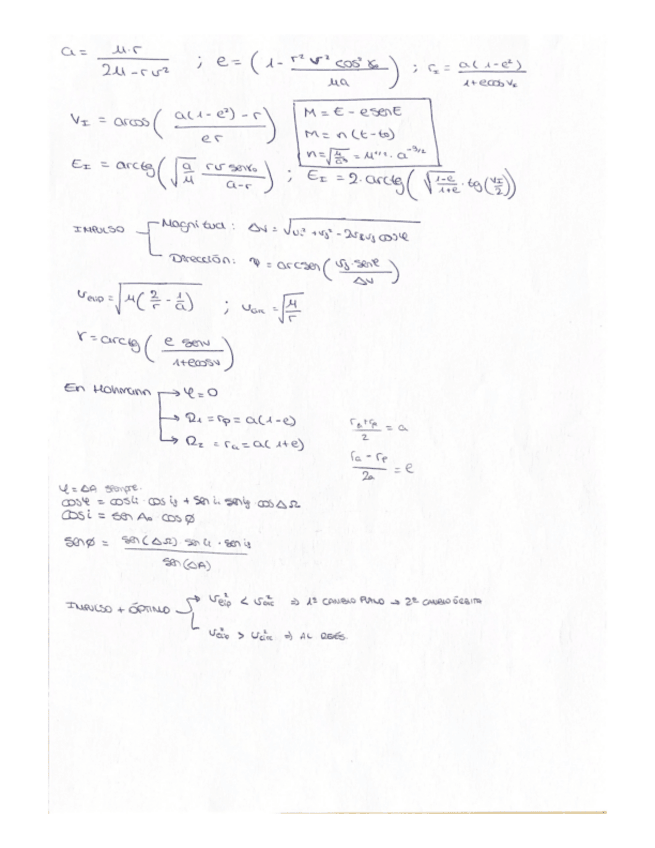 a = μ·r / (2μ - rv²) ; e = (1 - r² v² cos² γ₀ / μa) ; r_I = a(1-e²) / (1+e cos ν_I)
ν_I = arcos( (a(1-e²) - r) / er )
M = E - e sen E
M = n(t - t₀)
n = √(μ/a³) = μ^(1/2) · a^(-3/2)
E_I = arctg( √(a/μ) · rv senγ₀ / (a-r) ) ; E_I = 2·arctg( √((1-e)/(1+e)) · tg(ν_I/2) )
IMPULSO
Magnitud: Δv = √(v_i² + v_f² - 2v_i v_f cosφ)
Dirección: ψ = arcsen( v_f·senφ / Δv )
v_elip = √(μ(2/r - 1/a)) ; v_circ = √(μ/r)
γ = arctg( e senν / (1+e cosν) )
En Hohmann → φ = 0
→ R₁ = r_p = a(1-e)
→ R₂ = r_a = a(1+e)
(r_a + r_p)/2 = a
(r_a - r_p)/2a = e
φ = ΔA siempre.
cosφ = cos i_i · cos i_f + sen i_i · sen i_f · cos ΔΩ
cos i = sen A₀ · cos ø
sen ø = sen(ΔΩ) · sen i_i · sen i_f / sen(ΔA)
IMPULSO + ÓPTIMO
→ v_elip² < v_circ² ⇒ 1º CAMBIO PLANO → 2º CAMBIO ÓRBITA
v_elip² > v_circ² ⇒ AL REVÉS.